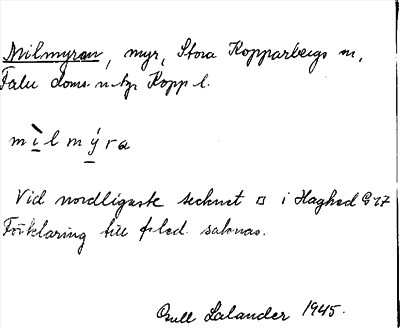 Milmyran, myr, Stora Kopparbergs sn,
Falu doms. n. tg. Kopp. l.
mìlmýra
Vid nordligaste tecknet □ i Haghed G 27
Förklaring till f.led. saknas.
Salander 1945.